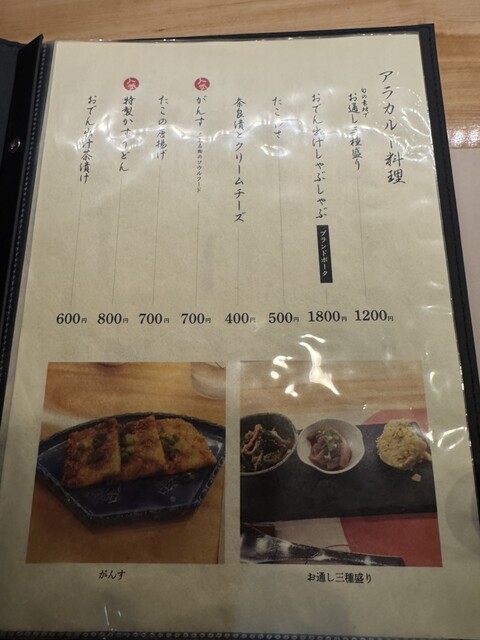 アラカルト料理
旬の素材で
お通し三種盛り
1200円
おでん出汁しゃぶしゃぶ
ブランドポーク
1800円
500円
奈良漬とクリームチーズ
400円
がんす
ソウルフード
700円
たこの唐揚げ
700円
特製かすうどん
800円
おでん出汁茶漬け
600円
がんす
お通し三種盛り